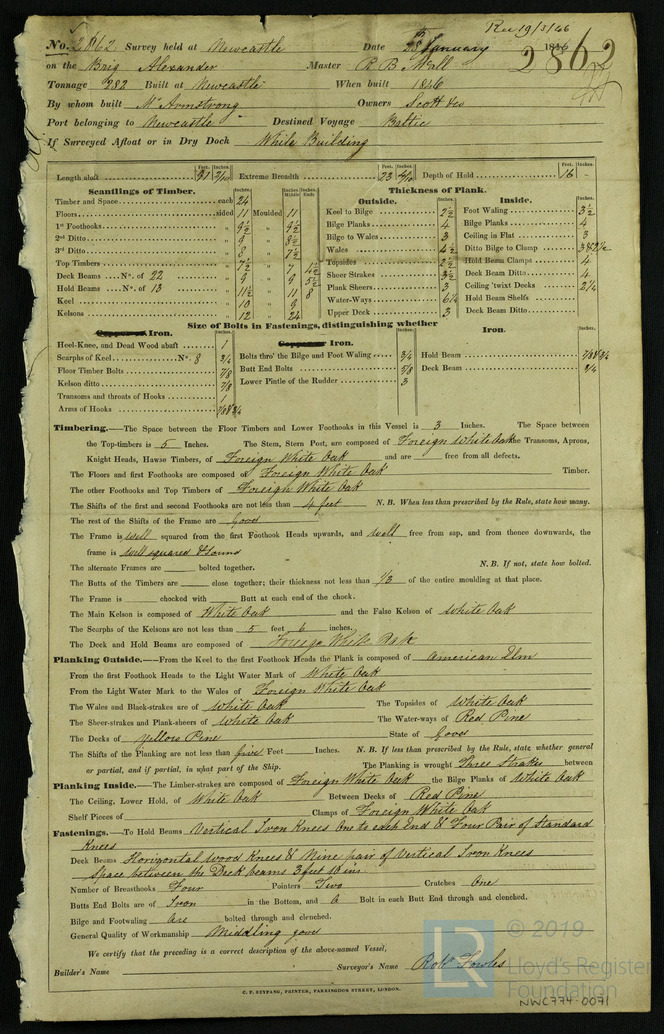 Rec 19/3/46
No. 2862 Survey held at Newcastle Date 28 January 1846
2862
on the Brig Alexander Master R B
Tonnage 282 Built at Newcastle When built 1846
By whom built Mr Armstrong Owners Scott & co
Port belonging to Newcastle Destined Voyage Baltic
If Surveyed Afloat or in Dry Dock While Building
Feet. Inches. Feet. Inches. Feet. Inches.
Length aloft 91 2/10 Extreme Breadth 23 4/10 Depth of Hold 16 -
Scantlings of Timber. Thickness of Plank.
Outside. Inside.
Timber and Space each 24 Keel to Bilge 2½ Foot Waling 3½
Floors sided 11 Moulded 11 Bilge Planks 4 Bilge Planks 4
1st Foothooks 9½ " 9½ Bilge to Wales 3 Ceiling in Flat 3
2nd Ditto 9 " 8½ Wales 4½ Ditto Bilge to Clamp
3rd Ditto 8 " 7½ Topsides 2½ Hold Beam Clamps 4
Top Timbers 7½ " 7 4½ Sheer Strakes 3½ Deck Beam Ditto 4
Deck Beams No. of 22 9 " 9 5½ Plank Sheers 3 Ceiling 'twixt Decks 2¼
Hold Beams No. of 13 11½ " 11 8 Water-Ways 6¼ Hold Beam Shelfs -
Keel 10 " 9 Upper Deck 3 Deck Beam Ditto -
Kelsons 12 " 24
Size of Bolts in Fastenings, distinguishing whether
Copper or Iron. Copper or Iron. Iron.
Heel-Knee, and Dead Wood abaft 1
Scarphs of Keel No. 8 ¾ Bolts thro' the Bilge and Foot Waling ¾ Hold Beam 7/8 & 3/4
Floor Timber Bolts 7/8 Butt End Bolts 5/8 Deck Beam ¾
Kelson ditto 7/8 Lower Pintle of the Rudder 3
Transoms and throats of Hooks 1
Arms of Hooks 7/8 & 3/4
Timbering.—The Space between the Floor Timbers and Lower Foothooks in this Vessel is 3 Inches. The Space between
the Top-timbers is 5 Inches. The Stem, Stern Post, are composed of Foreign White Oak the Transoms, Aprons,
Knight Heads, Hawse Timbers, of Foreign White Oak and are free from all defects.
The Floors and first Foothooks are composed of Foreign White Oak Timber.
The other Foothooks and Top Timbers of Foreign White Oak
The Shifts of the first and second Foothooks are not less than 4 feet N.B. When less than prescribed by the Rule, state how many.
The rest of the Shifts of the Frame are Good
The Frame is well squared from the first Foothook Heads upwards, and well free from sap, and from thence downwards, the
frame is well squared & Sound
The alternate Frames are bolted together. N.B. If not, state how bolted.
The Butts of the Timbers are close together; their thickness not less than 1/3 of the entire moulding at that place.
The Frame is chocked with Butt at each end of the chock.
The Main Kelson is composed of White Oak and the False Kelson of White Oak
The Scarphs of the Kelsons are not less than 5 feet 6 inches.
The Deck and Hold Beams are composed of Foreign White Oak
Planking Outside.—From the Keel to the first Foothook Heads the Plank is composed of American Elm
From the first Foothook Heads to the Light Water Mark of White Oak
From the Light Water Mark to the Wales of Foreign White Oak
The Wales and Black-strakes are of White Oak The Topsides of White Oak
The Sheer-strakes and Plank-sheers of White Oak The Water-ways of Red Pine
The Decks of Yellow Pine State of Good
The Shifts of the Planking are not less than five Feet Inches. N.B. If less than prescribed by the Rule, state whether general
or partial, and if partial, in what part of the Ship. The Planking is wrought Three Strakes between
Planking Inside.—The Limber-strakes are composed of Foreign White Oak the Bilge Planks of White Oak
The Ceiling, Lower Hold, of White Oak Between Decks of Red Pine
Shelf Pieces of Clamps of Foreign White Oak
Fastenings.—To Hold Beams Vertical Iron Knees One to each End & Four Pair of Standard
Knees
Deck Beams Horizontal wood Knees & Nine pair of Vertical Iron Knees
Space between the Deck beams 3 feet 10 ins
Number of Breasthooks Four Pointers Two Crutches One
Butts End Bolts are of Iron in the Bottom, and A Bolt in each Butt End through and clenched.
Bilge and Footwaling Are bolted through and clenched.
General Quality of Workmanship Middling good
We certify that the preceding is a correct description of the above-named Vessel,
Builder's Name Surveyor's Name Robt Fowles
C. F. SEYFANG, PRINTER, FARRINGDON STREET, LONDON.
LR
© 2019
Lloyd's Register
Foundation
NWC774-0071